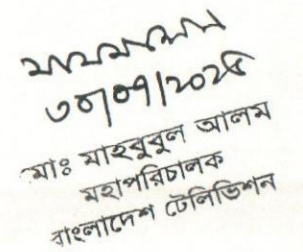 ৩০/০৭/২০২৫
মোঃ মাহবুবুল আলম
মহাপরিচালক
বাংলাদেশ টেলিভিশন